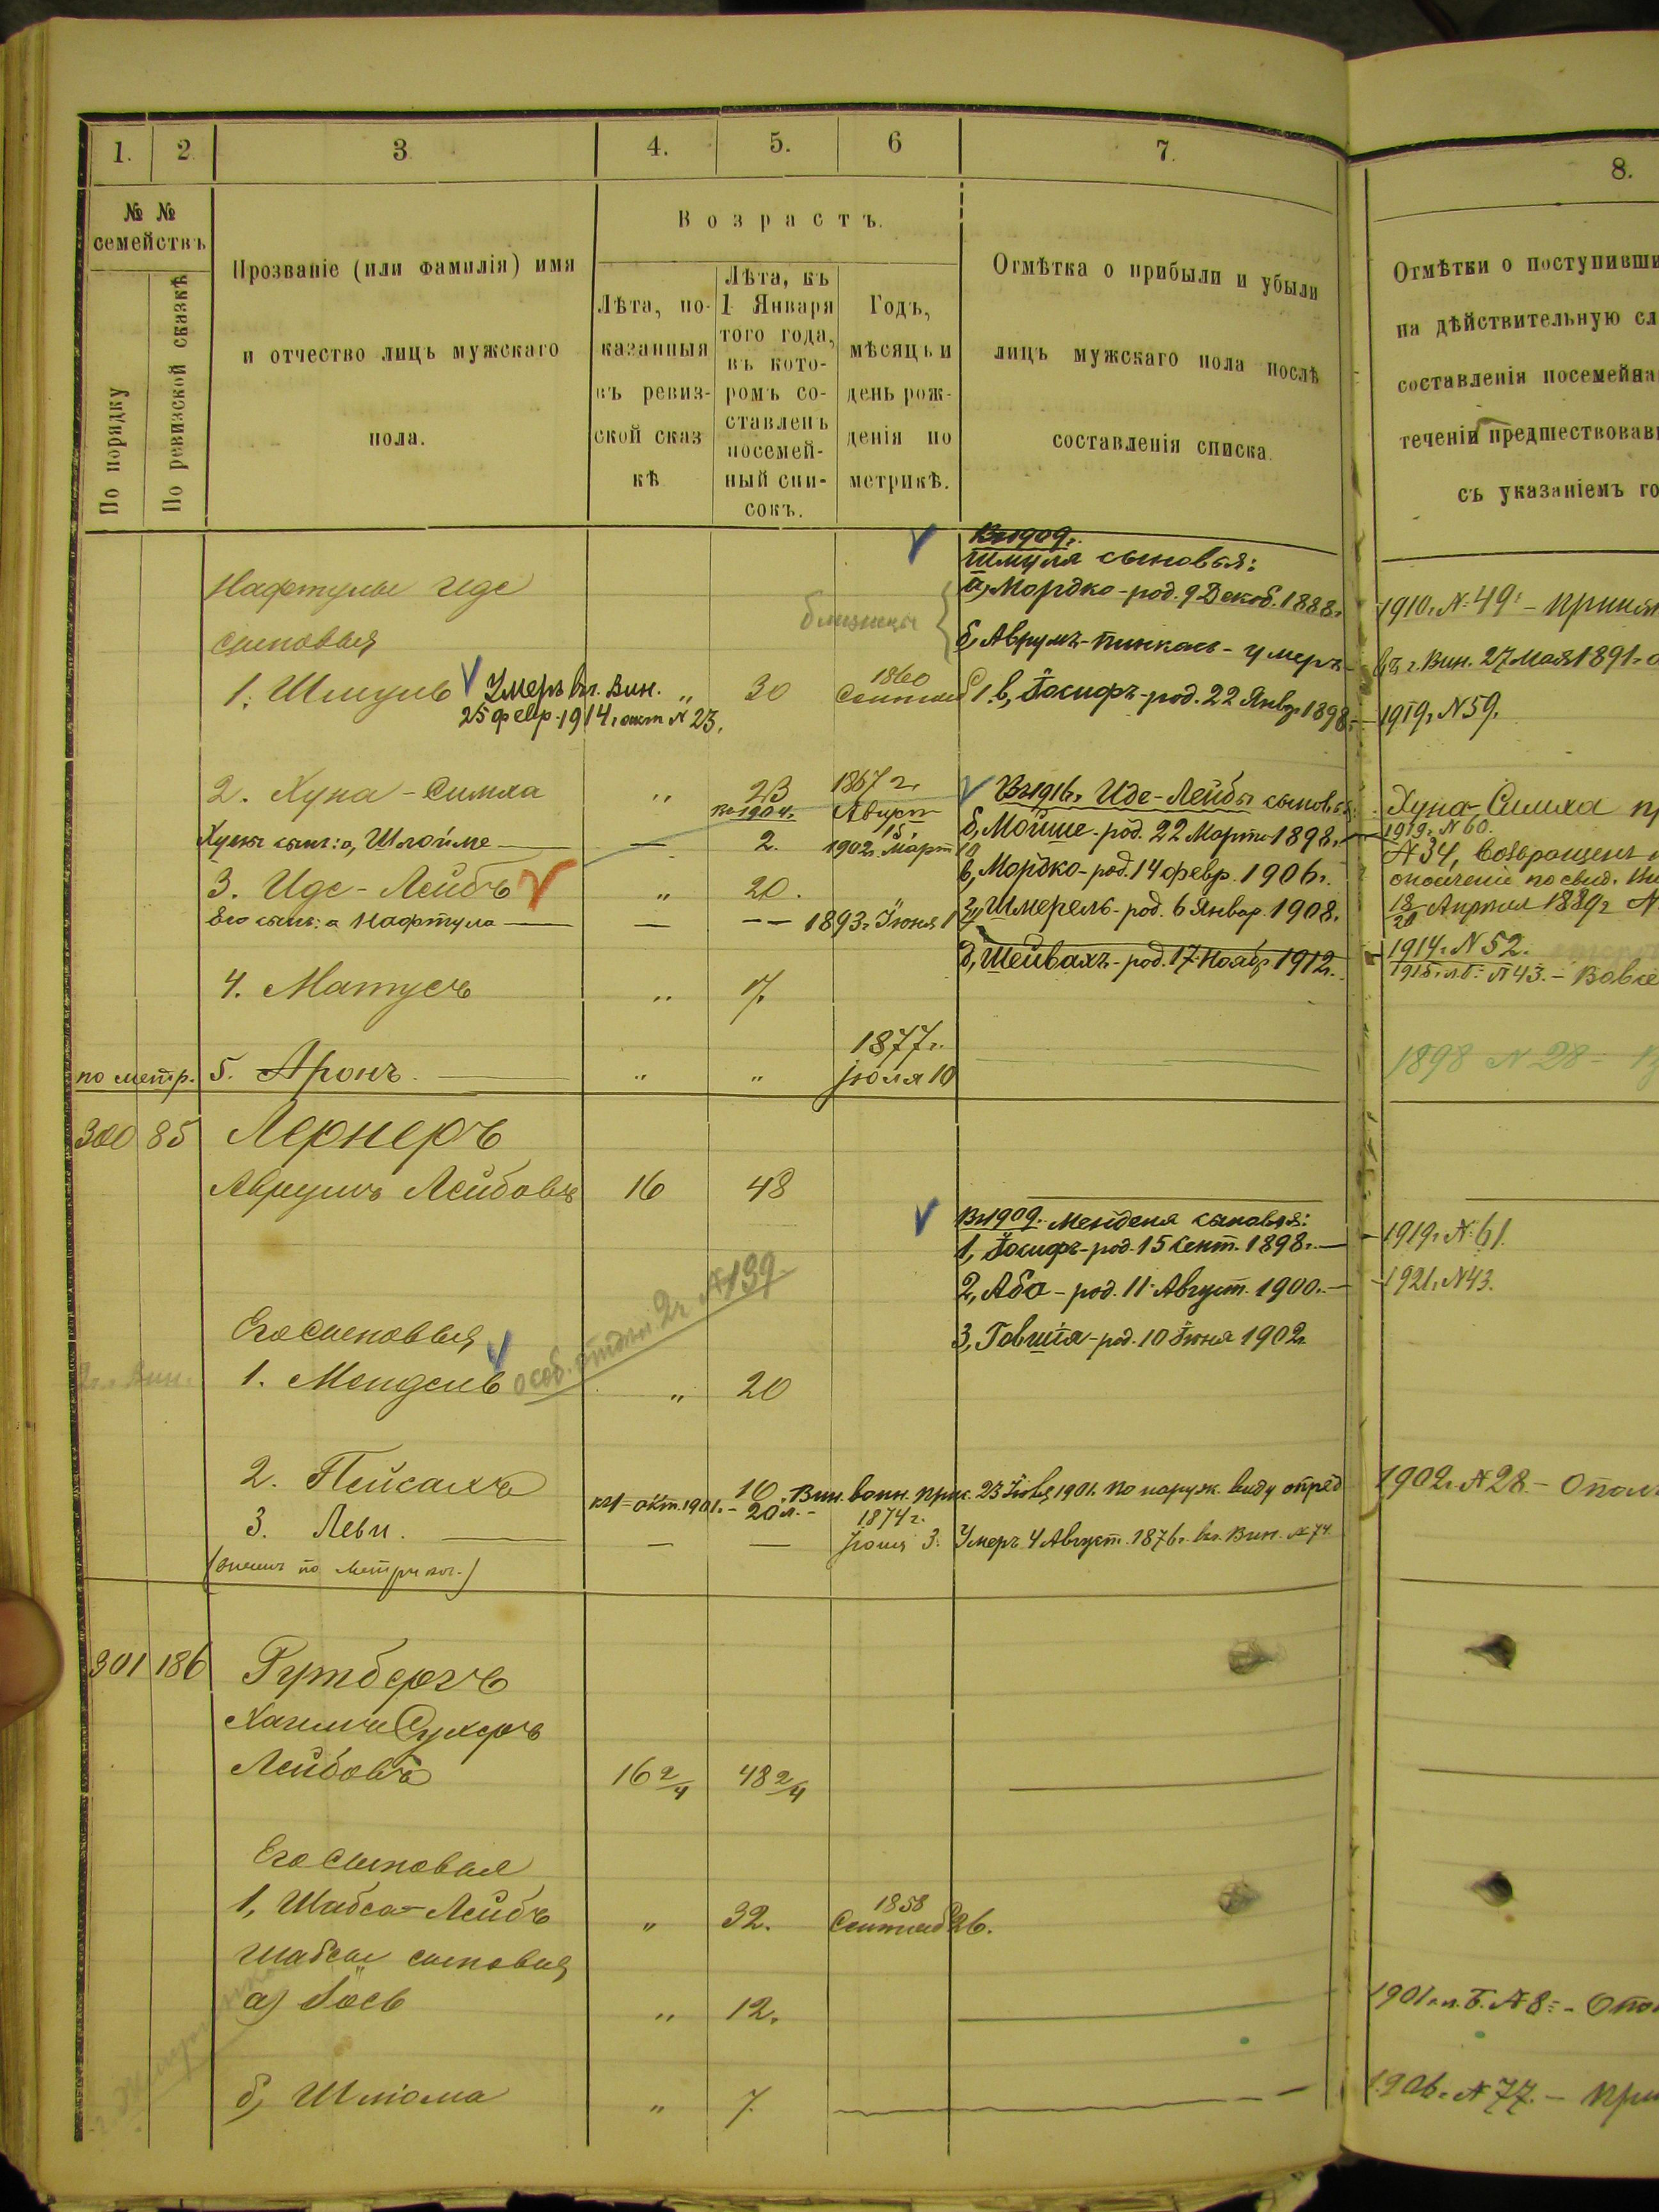 1. 2. 3 4. 5. 6 7. 8.
№ №
семействъ
По порядку
По ревизской сказкѣ
Прозваніе (или фамилія) имя
и отчество лицъ мужскаго
пола.
Возрастъ.
Лѣта, по-
казанныя
въ ревиз-
ской сказ
кѣ
Лѣта, къ
1 Января
того года,
въ кото-
ромъ со-
ставленъ
посемей-
ный спи-
сокъ.
Годъ,
мѣсяцъ и
день рож-
денія по
метрикѣ.
Отмѣтка о прибыли и убыли
лицъ мужскаго пола послѣ
составленія списка.
Отмѣтки о поступивши
на дѣйствительную сл
составленія посемейна
теченіи предшествовавш
съ указаніемъ го
Нафтулы Иде
сыновья
близнецы
Въ 1909 г.
Шмуля сыновья:
а, Мордко - род. 9 Декаб. 1888 г.
1910 г. № 49 - Принят
б, Аврумъ-Пинкасъ - умеръ
въ г. Вин. 27 Мая 1891 г.
1. Шмуль Умеръ въ г. Вин. „ 30 1860
25 февр. 1914 г. акт № 23.
в, Іосифъ - род. 22 Янвр. 1898 г. - 1919 г. № 59.
2. Хуна-Симха „ 23 1867 г.
Август
Въ 1916 г. Иде-Лейбы сыновья:
Хуна-Симха
Хуны сынъ: а, Шлойме — — 2. 1902 г. Март
къ 1904 г.
б, Мойше - род. 22 Марта 1898 г. - 1919 г. № 60.
№ 34, возвращенъ
3. Иде-Лейбъ „ 20.
в, Мордко - род. 14 февр. 1906 г.
Его сынъ: а Нафтула — — — 1893 г. Іюня 1
г, Шмерель - род. 6 Январ. 1908 г.
18/20 Апреля 1889 г
д, Шейвахъ - род. 17 Ноябр 1912 г.
1914 г. № 52.
1915 г. № 43. -
4. Матусъ „ 17.
по метр. 5. Аронъ. „ „ 1877 г.
Іюля 10
1898 № 28 -
300 85 Лернеръ
Аврумъ Лейбовъ 16 48
Въ 1909 г. Менделя сыновья:
1, Іосифъ - род. 15 Сент. 1898 г. - 1919 г. № 61.
2, Аба - род. 11 Август. 1900 г. - 1921 г. № 43.
3, Говшія - род. 10 Іюня 1902 г.
Его сыновья
1. Мендель „ 20
особ. № 139
2. Пейсахъ 10
къ 1 окт. 1901 г. - 20 л. - Вин. воин. прис. 23 1901 г. по наруж. виду опред
1902 г. № 28 - Опол
3. Леви. — — 1874 г.
Іюня 3. Умеръ 4 Август. 1876 г. въ г. Вин. № 74
301 186 Гутбергъ
Хаимъ Сухеръ
Лейбовъ 16 2/4 48 2/4
Его сыновья
1, Шабса-Лейбъ „ 32. 1858
Сентяб 26.
Шабсы сыновья
а) Іось „ 12.
1901 г. л. Б. № 8 - Опол
б, Шліома „ 7.
1906 г. № 77. - При